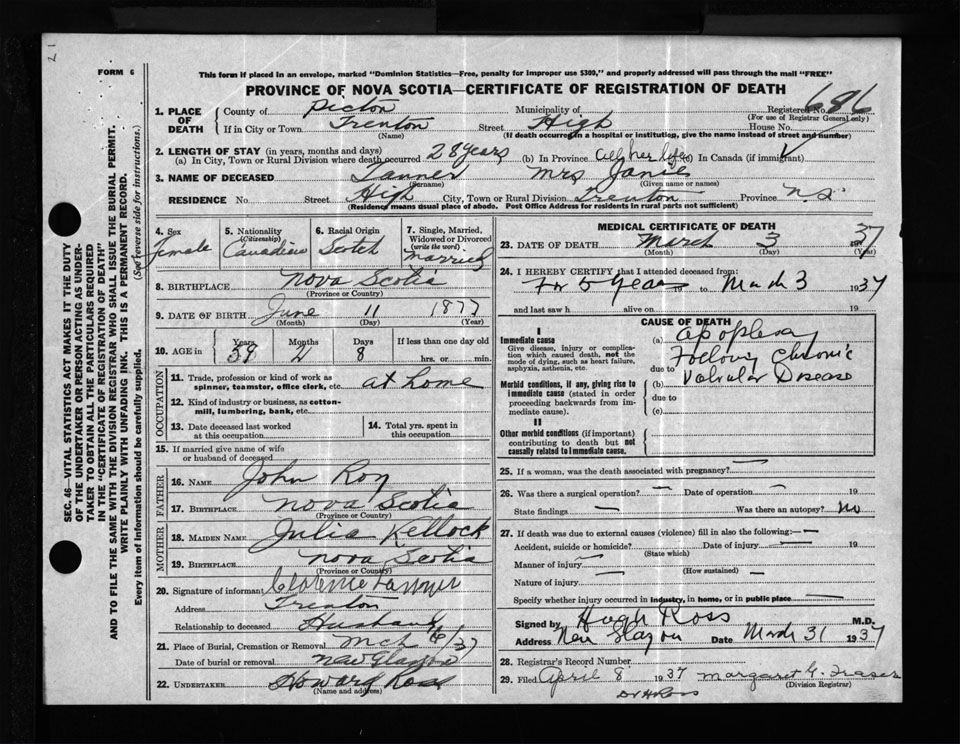 FORM 6
This form if placed in an envelope, marked "Dominion Statistics—Free, penalty for improper use $300," and properly addressed will pass through the mail "FREE"
PROVINCE OF NOVA SCOTIA—CERTIFICATE OF REGISTRATION OF DEATH
SEC. 46—VITAL STATISTICS ACT MAKES IT THE DUTY
OF THE UNDERTAKER OR PERSON ACTING AS UNDER-
TAKER TO OBTAIN ALL THE PARTICULARS REQUIRED
IN THE "CERTIFICATE OF REGISTRATION OF DEATH"
AND TO FILE THE SAME WITH THE DIVISION REGISTRAR WHO SHALL ISSUE THE BURIAL PERMIT.
WRITE PLAINLY WITH UNFADING INK. THIS IS A PERMANENT RECORD.
Every item of information should be carefully supplied. (See reverse side for instructions.)
1. PLACE OF DEATH County of Pictou Municipality of Registered No. 686
(For use of Registrar General only)
If in City or Town Trenton Street High House No.
(Name) (If death occurred in a hospital or institution, give the name instead of street and number)
2. LENGTH OF STAY (in years, months and days)
(a) In City, Town or Rural Division where death occurred 28 years (b) In Province all her life In Canada (if immigrant)
3. NAME OF DECEASED Tanner Mrs Janie
(Surname) (Given name or names)
RESIDENCE No. Street High City, Town or Rural Division Trenton Province N.S.
(Residence means usual place of abode. Post Office Address for residents in rural parts not sufficient)
4. Sex female
5. Nationality (Citizenship) Canadian
6. Racial Origin Scotch
7. Single, Married, Widowed or Divorced (write the word) Married
8. BIRTHPLACE Nova Scotia
(Province or Country)
9. DATE OF BIRTH June 11 1877
(Month) (Day) (Year)
10. AGE in Years 59 Months Days 8 If less than one day old
hrs. or min.
OCCUPATION
11. Trade, profession or kind of work as spinner, teamster, office clerk, etc. at home
12. Kind of industry or business, as cotton-mill, lumbering, bank, etc.
13. Date deceased last worked at this occupation
14. Total yrs. spent in this occupation
15. If married give name of wife or husband of deceased
FATHER
16. NAME John Roy
17. BIRTHPLACE Nova Scotia
(Province or Country)
MOTHER
18. MAIDEN NAME Julia Kellock
19. BIRTHPLACE Nova Scotia
(Province or Country)
20. Signature of informant Clarence Tanner
Address Trenton
Relationship to deceased Husband
21. Place of Burial, Cremation or Removal Mch /37
Date of burial or removal New Glasgow
22. UNDERTAKER Howard Ross
(Name and address)
MEDICAL CERTIFICATE OF DEATH
23. DATE OF DEATH March 3 1937
(Month) (Day) (Year)
24. I HEREBY CERTIFY that I attended deceased from:
For 5 Years 19 to March 3 1937
and last saw h alive on 19
CAUSE OF DEATH
I
Immediate cause
Give disease, injury or complication which caused death, not the mode of dying, such as heart failure, asphyxia, asthenia, etc.
(a) Apoplexy
due to Following Chronic
Morbid conditions, if any, giving rise to immediate cause (stated in order proceeding backwards from immediate cause).
(b) Valvular Disease
due to
(c)
II
Other morbid conditions (if important) contributing to death but not causally related to immediate cause.
25. If a woman, was the death associated with pregnancy? —
26. Was there a surgical operation? — Date of operation — 19
State findings — Was there an autopsy? no
27. If death was due to external causes (violence) fill in also the following:—
Accident, suicide or homicide? — Date of injury — 19
(State which)
Manner of injury —
(How sustained) —
Nature of injury —
Specify whether injury occurred in industry, in home, or in public place —
Signed by Hugh Ross M.D.
Address New Glasgow Date March 31 1937
28. Registrar's Record Number
29. Filed April 8 1937 Margaret G. Fraser
(Division Registrar)
Dr H Ross